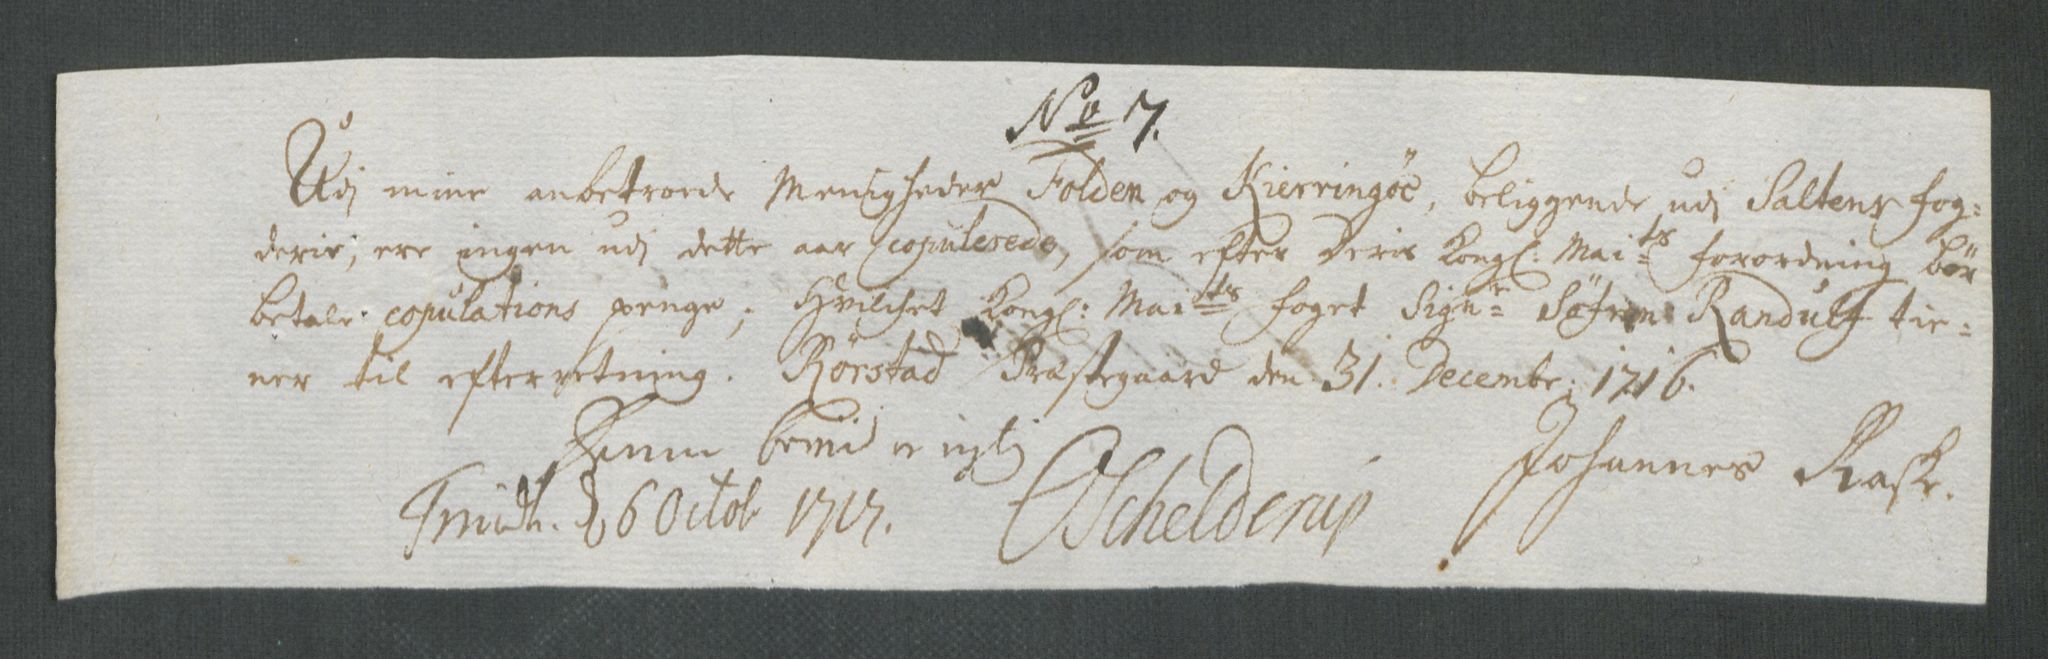 No 7.
Udj mine anbetroede Menigheder Folden og Kierringøe, beliggende udj Saltens fog=
derie, ere ingen udj dette aar copulerede, som efter Deris Kongl: Maits forordning bör
betale copulations penge; Hvilchet Kongl: Maits foget Signr Söfren Randulf tie=
ner til efterretning. Rörstad Præstegaard den 31. Decembr: 1716.
Johannes Rask.
Trundh. d 6 Octob 1717.
Schelderup